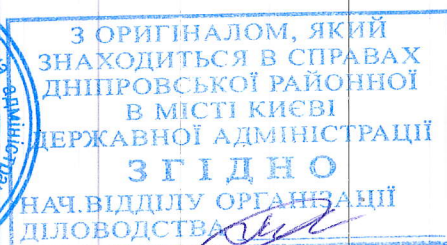 З ОРИГІНАЛОМ, ЯКИЙ
ЗНАХОДИТЬСЯ В СПРАВАХ
ДНІПРОВСЬКОЇ РАЙОННОЇ
В МІСТІ КИЄВІ
ДЕРЖАВНОЇ АДМІНІСТРАЦІЇ
ЗГІДНО
НАЧ.ВІДДІЛУ ОРГАНІЗАЦІЇ
ДІЛОВОДСТВА